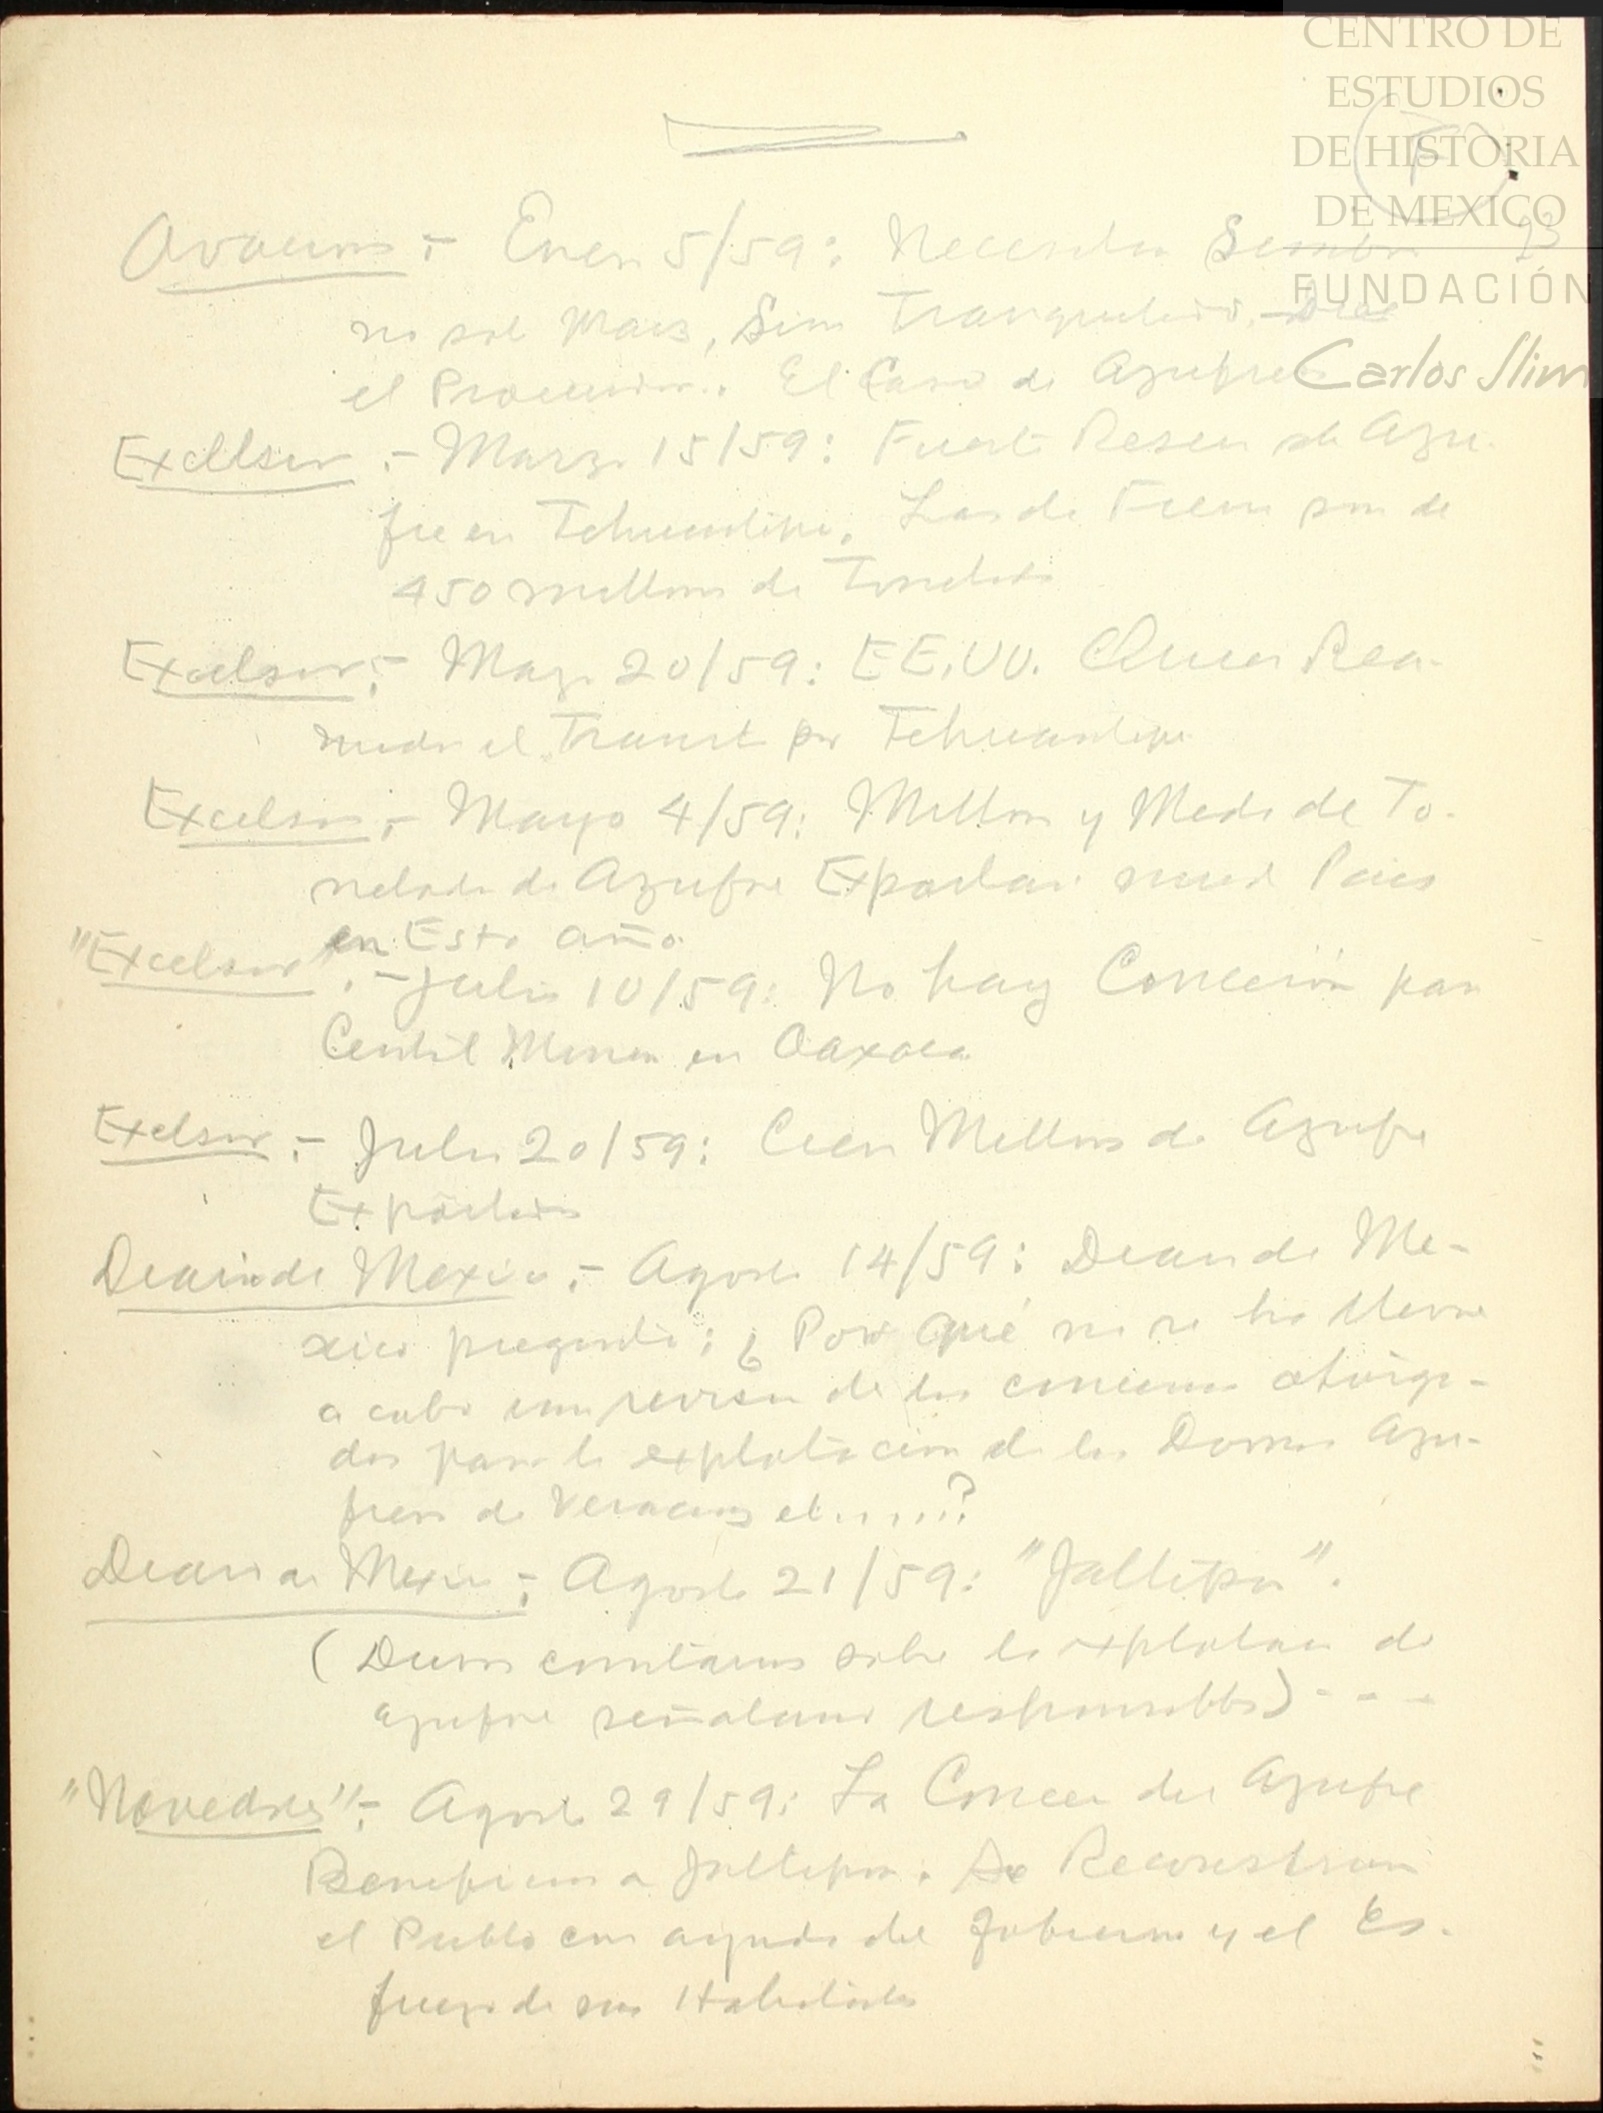 CENTRO DE
ESTUDIOS
DE HISTORIA
DE MEXICO
FUNDACIÓN
Carlos Slim
93
Ovaciones.- Enero 5/59: Necesitan Sembrar
no solo Maiz, Sino Tranquilidad, Dice
el Procurador. El Caso de Azufre
Excelsior.- Marzo 15/59: Fuerte Reserva de Azu-
fre en Tehuantepec. Las de son de
450 millones de Toneladas
Excelsior.- Marzo 20/59: EE.UU. Quiere Rea-
nudar el Transito por Tehuantepec
Excelsior.- Mayo 4/59: Millon y Medio de To-
neladas de Azufre Exportará nuestro Pais
en Este año
"Excelsior".- Julio 10/59: No hay Concesión para
Minera en Oaxaca
Exelsior.- Julio 20/59: Cien Millones de Azufre
Exportados
Diario de Mexico.- Agosto 14/59: Diario de Me-
xico pregunta: ¿Por qué no se ha llevado
a cabo una revisión de las concesiones otorga-
das para la explotación de los Domos Azu-
freros de Veracruz et.....?
Diario de Mexico.- Agosto 21/59: "Jaltipan".
( comentarios sobre la explotacion de
azufre señalando responsables) - - -
"Novedades".- Agosto 29/59: La Concesion del Azufre
Beneficiara a Jaltipan. Se Reconstruira
el Pueblo con ayuda del Gobierno y el Es-
fuerzo de sus Habitantes